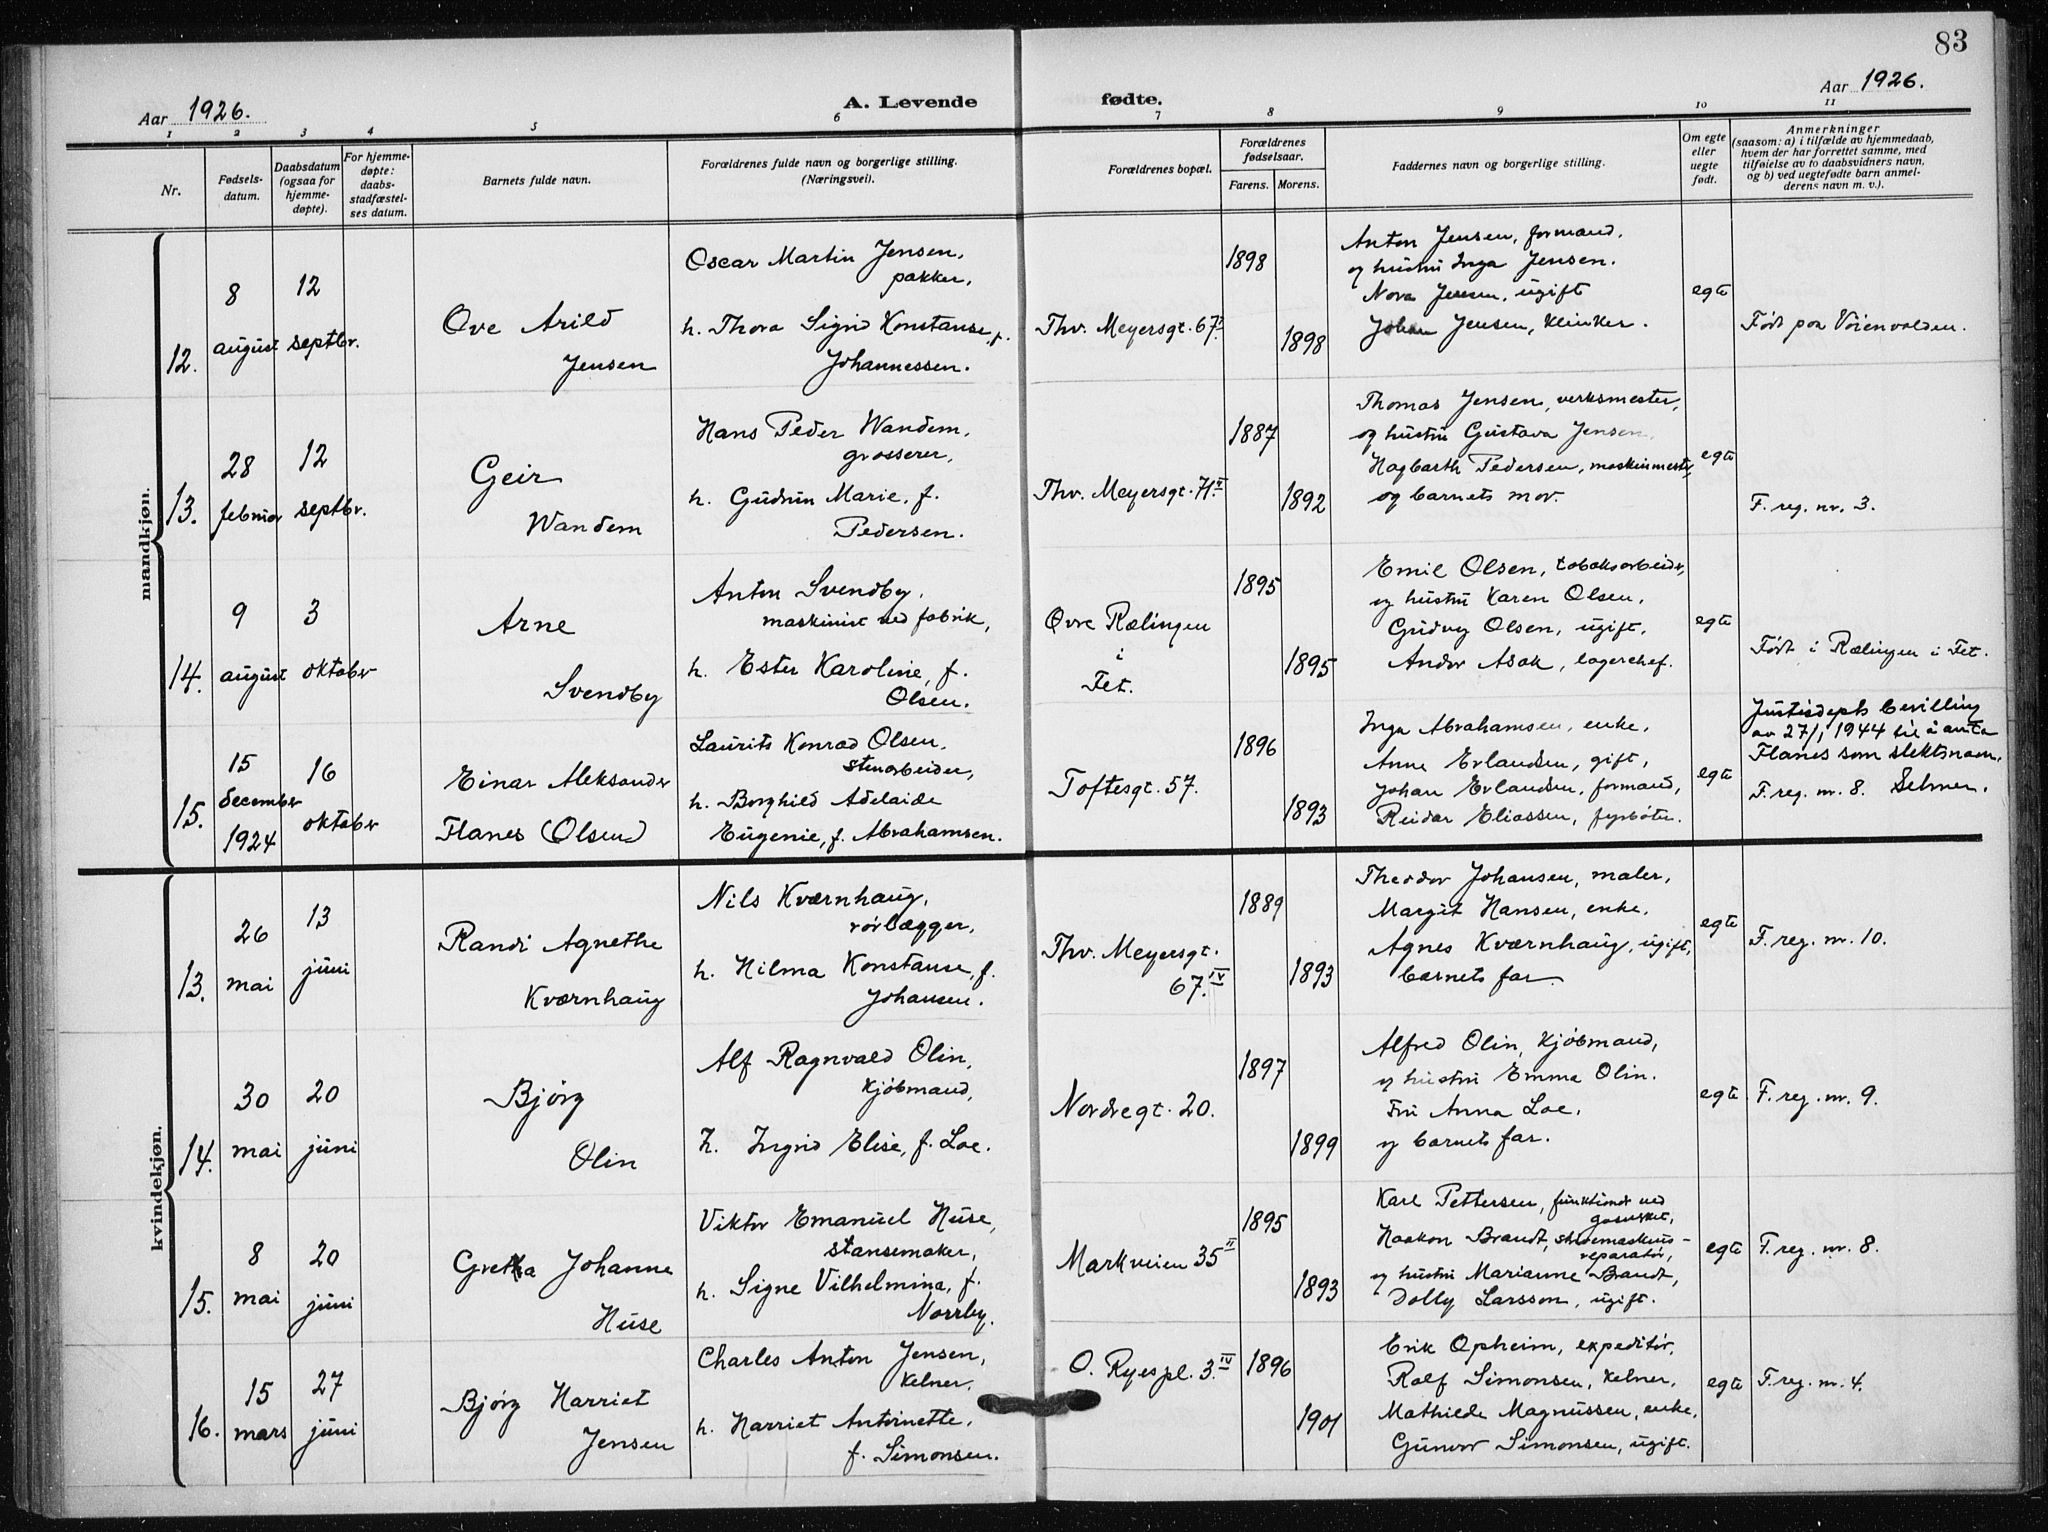 83
Aar 1926.
A. Levende fødte.
Aar 1926.
1 2 3 4 5 6 7 8 9 10 11
Nr.
Fødsels-
datum.
Daabsdatum
(ogsaa for
hjemme-
døpte).
For hjemme-
døpte:
daabs-
stadfæstel-
ses datum.
Barnets fulde navn.
Forældrenes fulde navn og borgerlige stilling.
(Næringsvei).
Forældrenes bopæl.
Forældrenes
fødselsaar.
Farens. Morens.
Faddernes navn og borgerlige stilling.
Om egte
eller
uegte
født.
Anmerkninger
(saasom: a) i tilfælde av hjemmedaab,
hvem der har forrettet samme, med
tilføielse av to daabsvidners navn,
og b) ved uegtefødte barn anmel-
derens navn m. v.).
mandkjøn.
12.
8
august
12
septbr.
Ove Arild
Jensen
Oscar Martin Jensen,
pakker,
h. Thora Sigrid Konstanse, f.
Johannessen.
Thv. Meyersgt. 67I
1898
1898
Anton Jensen, formand,
og hustru Inga Jensen.
Nora Jensen, ugift
Johan Jensen, klinker.
egte
Født paa Voienvolden.
13.
28
februar
12
septbr.
Geir
Wandem
Hans Peder Wandem,
grosserer,
h. Gudrun Marie, f.
Pedersen.
Thv. Meyersgt. 71II
1887
1892
Thomas Jensen, verksmester,
og hustru Gustava Jensen,
Hagbarth Pedersen, maskinmester,
og barnets mor.
egte
F. reg. nr. 3.
14.
9
august
3
oktober
Arne
Svendby
Anton Svendby,
maskinist ved fabrik,
h. Ester Karoline, f.
Olsen.
Øvre Rælingen
i
Fet.
1895
1895
Emil Olsen, tobaksarbeider,
og hustru Karen Olsen,
Gudny Olsen, ugift,
Andor Asak, lagerchef.
egte
Født i Rælingen i Fet.
15.
15
december
1924
16
oktober
Einar Aleksander
Flanes (Olsen)
Laurits Konrad Olsen,
stenarbeider,
h. Borghild Adelaide
Eugenie, f. Abrahamsen.
Toftesgt. 57.
1896
1893
Inga Abrahamsen, enke,
Anne Erlandsen, gift,
Johan Erlandsen, formand,
Reidar Eliassen, fyrbøter.
egte
Justisdepts bevilling
av 27/1 1944 til å anta
Flanes som slektsnavn.
F. reg. nr. 8. Selmer.
kvindekjøn.
13.
26
mai
13
juni
Randi Agnethe
Kværnhaug
Nils Kværnhaug,
rørlægger,
h. Hilma Konstanse, f.
Johansen.
Thv. Meyersgt.
67.IV
1889
1893
Theodor Johansen, maler,
Margit Hansen, enke,
Agnes Kværnhaug, ugift,
barnets far.
egte
F. reg. nr. 10.
14.
30
mai
20
juni
Bjørg
Olin
Alf Ragnvald Olin,
kjøbmand,
h. Ingrid Elise, f. Loe.
Nordregt. 20.
1897
1899
Alfred Olin, kjøbmand,
og hustru Emma Olin.
Fru Anna Loe,
og barnets far.
egte
F. reg. nr. 9.
15.
8
mai
20
juni
Gretha Johanne
Huse
Viktor Emanuel Huse,
stansemaker,
h. Signe Vilhelmina, f.
Norrby.
Markveien 35II
1895
1893
Karl Pettersen, funktionær ved
gasverket,
Haakon Brandt, skrivemaskins-
reparatør,
og hustru Marianne Brandt,
Dolly Larsson, ugift.
egte
F. reg. nr. 8.
16.
15
mars
27
juni
Bjørg Harriet
Jensen
Charles Anton Jensen,
kelner.
h. Harriet Antoinette,
f. Simonsen.
O. Ryespl. 3.IV
1896
1901
Erik Opheim, expeditør,
Rolf Simonsen, kelner,
Mathilde Magnussen, enke,
Gunvor Simonsen, ugift.
egte
F. reg. nr. 4.